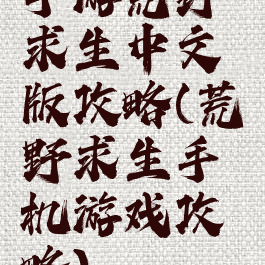 手游荒野
求生中文
版攻略(荒
野求生手
机游戏攻
略)